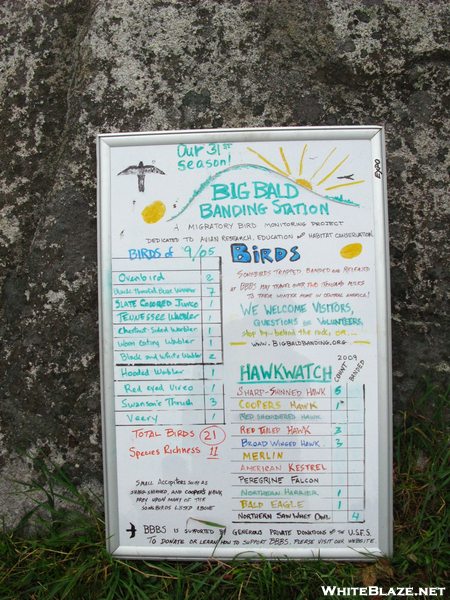 Our 31ST
Season!
EXPO
BIG BALD
BANDING STATION
A MIGRATORY BIRD MONITORING PROJECT
DEDICATED TO AVIAN RESEARCH, EDUCATION AND HABITAT CONSERVATION
BIRDS OF 9/05
Ovenbird 2
Black-throated Blue Warbler 7
SLATE COLORED Junco 1
TENNESSEE Warbler 1
Chestnut-Sided Warbler 1
Worm Eating Warbler 1
Black and White Warbler 2
Hooded Warbler 1
Red eyed Vireo 1
Swainson's Thrush 3
Veery 1
TOTAL BIRDS 21
Species Richness 11
SMALL ACCIPITERS SUCH AS
SHARP-SHINNED, AND COOPER'S HAWK
PREY UPON MANY OF THE
SONGBIRDS LISTED ABOVE
BIRDS
SONGBIRDS TRAPPED BANDED AND RELEASED
AT BBBS MAY TRAVEL OVER TWO THOUSAND MILES
TO THEIR WINTER HOME IN CENTRAL AMERICA!
WE WELCOME VISITORS,
QUESTIONS OR VOLUNTEERS,
stop by - behind the rock, or...
WWW.BIGBALDBANDING.ORG
2009
HAWKWATCH COUNT BANDED
SHARP-SHINNED HAWK 6
COOPERS HAWK 1
RED SHOULDERED HAWK
RED TAILED HAWK 3
BROAD WINGED HAWK 3
MERLIN
AMERICAN KESTREL
PEREGRINE FALCON
NORTHERN HARRIER 1
BALD EAGLE 1
NORTHERN SAW WHET OWL 4
BBBS IS SUPPORTED BY GENEROUS PRIVATE DONATIONS AND THE U.S.F.S.
TO DONATE OR LEARN HOW TO SUPPORT BBBS, PLEASE VISIT OUR WEBSITE.
WHITEBLAZE.NET